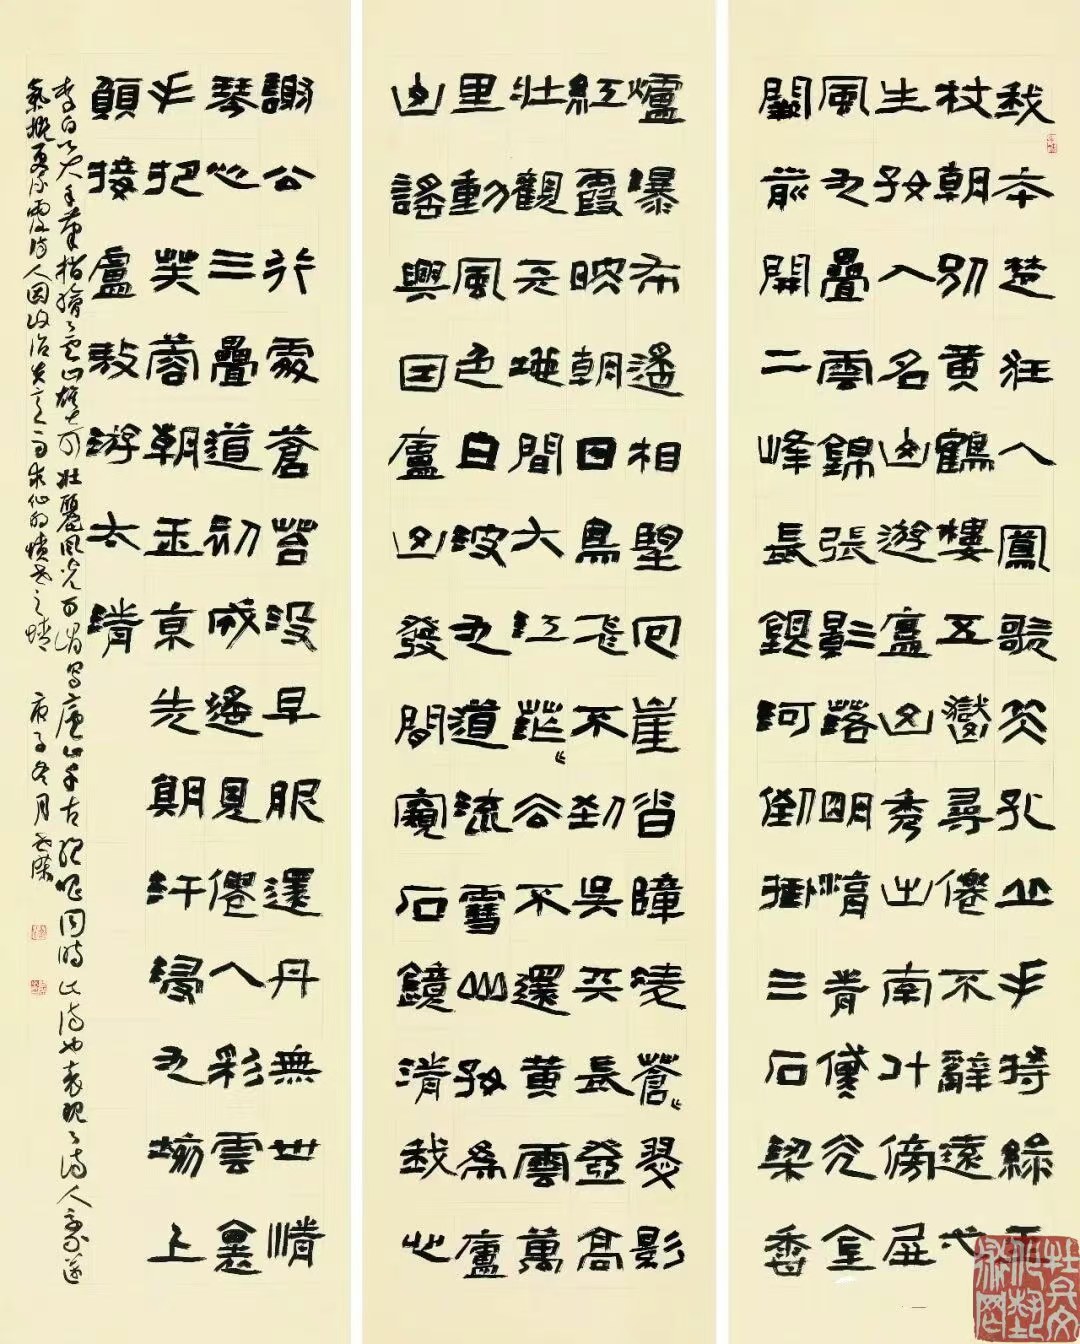 我本楚狂人鳳歌笑孔丘手持綠玉
杖朝別黃鶴樓五嶽尋僊不辭遠弌
生好入名山遊廬山秀出南斗傍屏
風九疊雲錦張影落明湖青黛光金
闕前開二峰長銀河倒挂三石梁香
爐瀑布遙相望回崖沓嶂凌蒼〻翠影
紅霞映朝日鳥飛不到吳天長登高
壯觀天地間大江茫〻去不還黃雲萬
里動風色白波九道流雪山好為廬
山謠興因廬山發閒窺石鏡清我心
謝公行處蒼苔沒早服還丹無世情
琴心三疊道初成遙見僊人彩雲裏
手把芙蓉朝玉京先期汗漫九垓上
願接盧敖游太清
李白以大手筆描繪了廬山雄奇壯麗風光可謂寫廬山千古絕唱同時此詩也表現了詩人豪邁
氣概更流露詩人因政治失意而求仙的憤世之情 庚子冬月